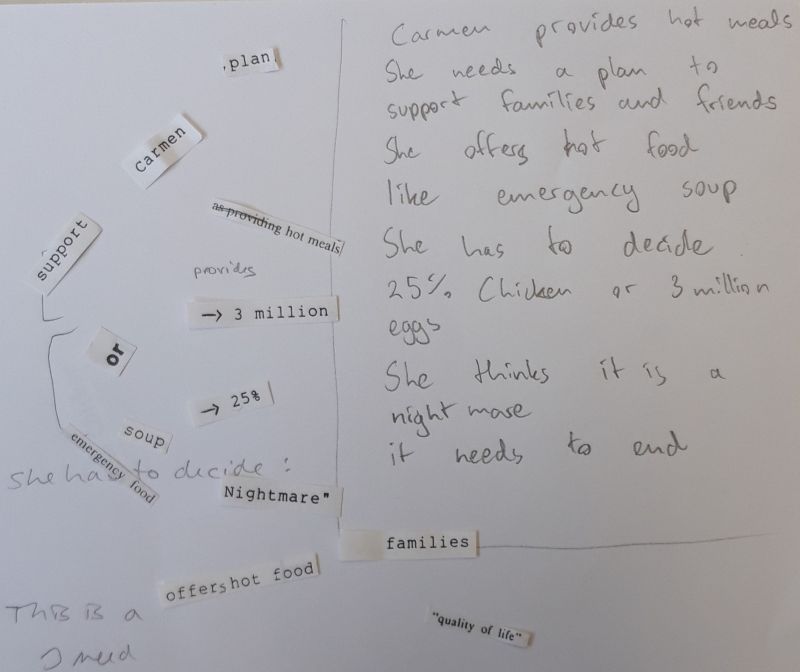 plan
Carmen
as providing hot meals
support
provides
→ 3 million
or
→ 25%
soup
emergency food
she has to decide :
Nightmare"
families
offers hot food
"quality of life"
This is a
I need
Carmen provides hot meals
She needs a plan to
support families and friends
She offers hot food
like emergency soup
She has to decide
25% Chicken or 3 million
eggs
She thinks it is a
nightmare
it needs to end